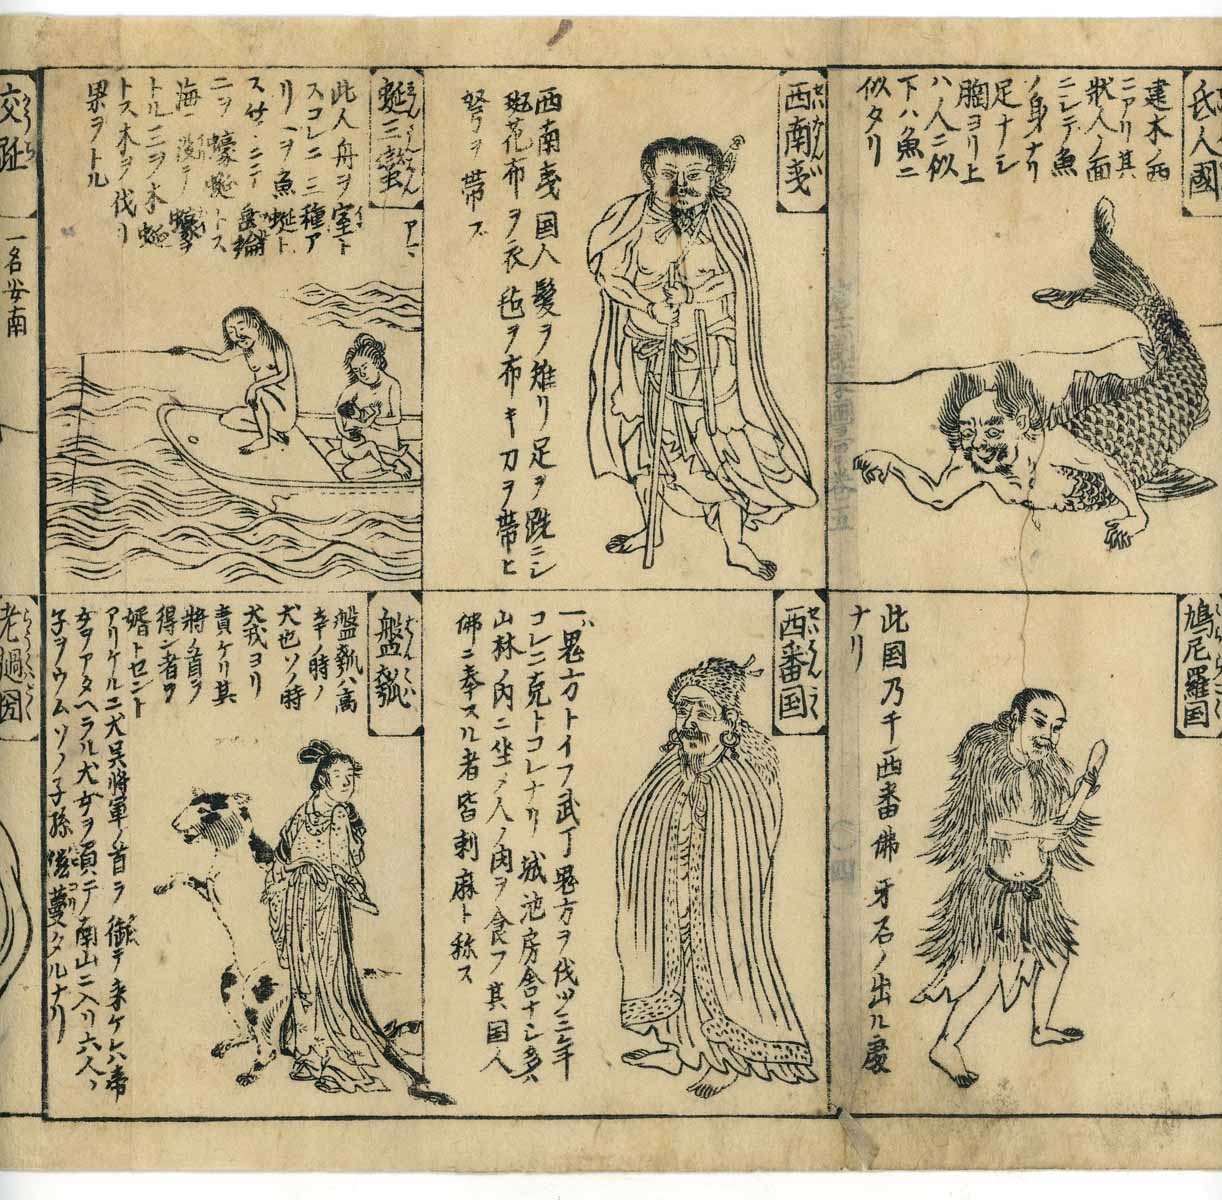 氐人國
建木ノ西
ニアリ其
狀人ノ面
ニシテ魚
ノ身ナリ
足ナシ
胸ヨリ上
ハ人ニ似
下ハ魚ニ
似タリ
西南夷
西南夷国人髪ヲ雉リ足ヲ跣ニシ
斑花布ヲ衣毡ヲ布キ刀ヲ帶ヒ
弩ヲ帶ズ
蜒三蠻
此人舟ヲ室ト
スコレニ三種ア
リ一ヲ魚蜒ト
ス
ニヲ蠔蜒トス
海ニ没テ蠔ヲ
トル三ヲ木蜒
トス木ヲ伐リ
果ヲトル
交趾
一名安南
鳩尼羅国
此国乃千西番佛牙石ノ出ル處
ナリ
西番国
一鬼方トイフ武丁鬼方ヲ伐ツ三年
コレニ克トコレナリ城池房舎ナシ多ハ
山林ノ内ニ坐〆人ノ肉ヲ食フ其国人
佛ニ奉スル者皆剌麻ト称ス
盤瓠
盤瓠ハ高
辛ノ時ノ
犬也ソノ時
犬戎ヨリ
責ケリ其
將ノ首ヲ
得ン者ヲ
婿トセント
アリケルニ犬呉將軍ノ首ヲ御テ来ケレハ帝
女ヲアタヘラル犬女ヲ負テ南山ニ入リ六人ノ
子ヲウムソノ子孫
老過国